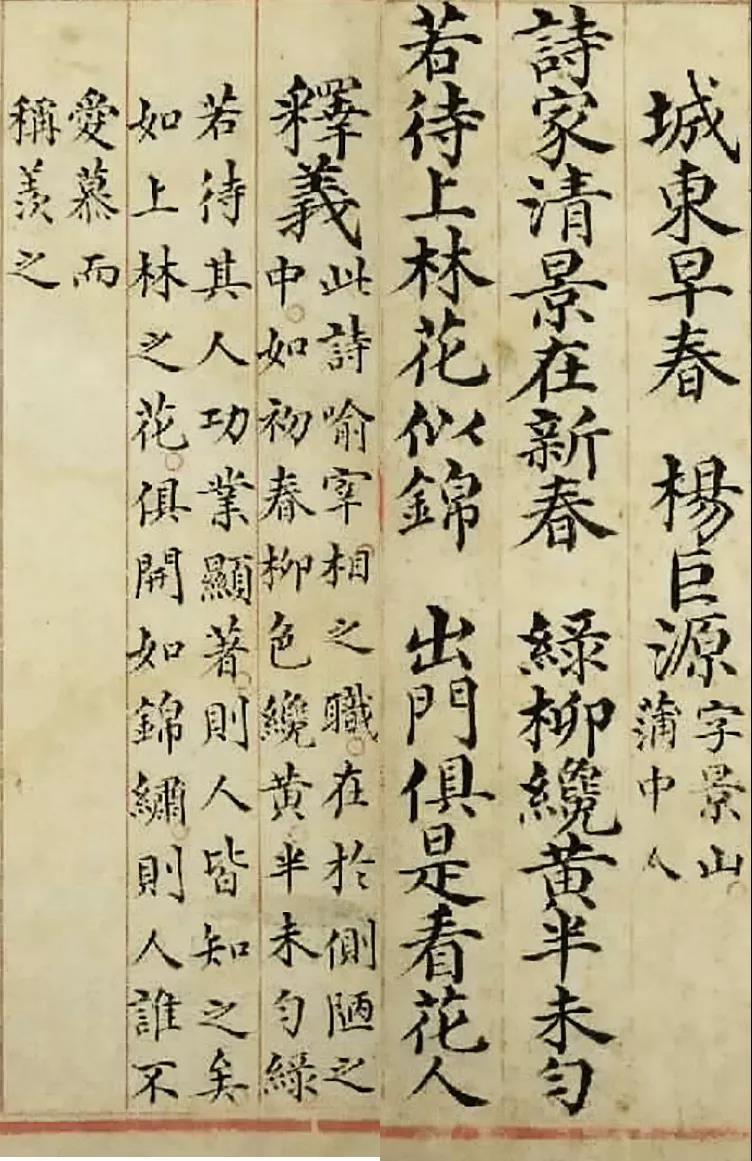 城東早春 楊巨源
字景山
蒲中人
詩家清景在新春 緑柳纔黃半未勻
若待上林花似錦 出門俱是看花人
釋義
此詩喻宰相之職在於側陋之
中如初春柳色纔黃半未勻緑
若待其人功業顯著則人皆知之矣
如上林之花俱開如錦繡則人誰不
愛慕而
稱羨之